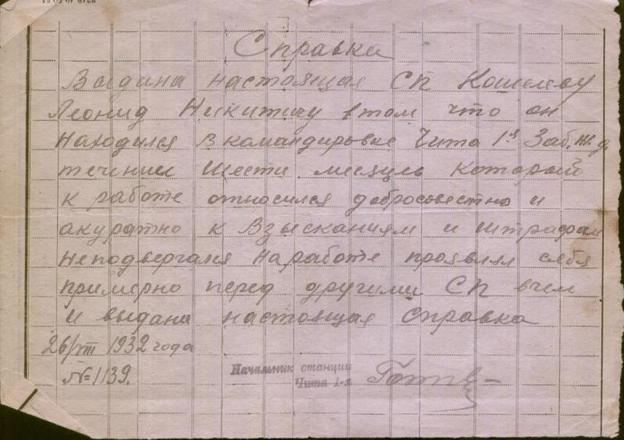 Справка
Выдана настоящая СП Кошелеву
Леонид Никитичу в том что он
Находился в командировке Чита 1я Заб. ж д.
течение Шести месяцев который
к работе относился добросовестно и
акуратно к Взысканиям и штрафам
неподвергался на работе проявлял себя
примерно перед другими СП вчем
и выдана настоящая справка
26/VIII 1932 года
№ 1139. Начальник станции
Чита 1-я